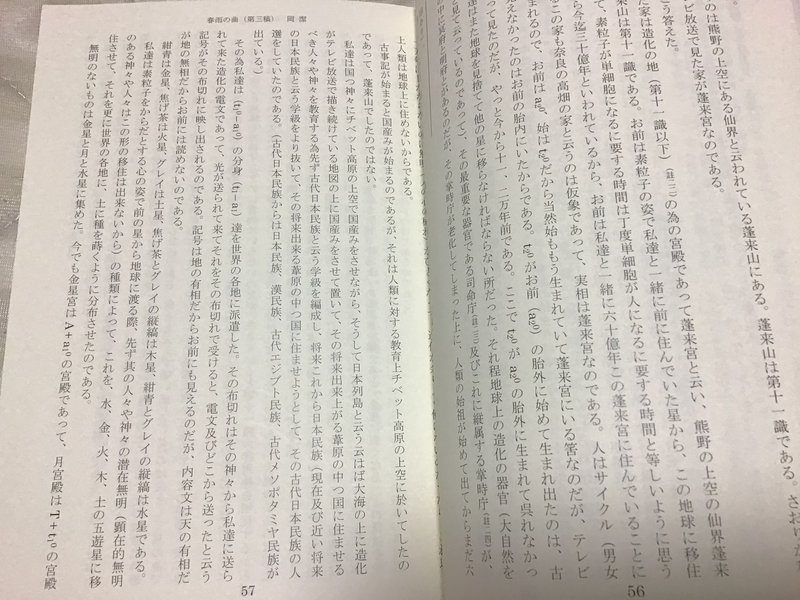 のは熊野の上空にある仙界と云われている蓬来山にある。蓬来山は第十一識である。さおりが
う答えた。
ビ放送で見た家が蓬来宮なのである。
は造化の地(第十一識以下)(註・二)の為の宮殿であって蓬来宮と云い、熊野の上空の仙界蓬来
は第十一識である。お前は素粒子の姿で私達と一緒に前に住んでいた星から、この地球に移住
て、素粒子が単細胞になるに要する時間は丁度単細胞が人になるに要する時間と等しいように思う
から今迄三十億年といわれているから、お前は私達と一緒に六十億年この蓬来宮に住んでいることに
この家も奈良の高畑の家と云うのは仮象であって、実相は蓬来宮なのである。人はサイクル(男女
まれるので、お前は a₂⁰、始は t₂⁰ だから当然始ももう生まれていて蓬来宮にいる筈なのだが、テレビ
えなかったのはお前の胎内にいたからである。t₂⁰ がお前(a₂⁰)の胎外に生まれて呉れなかっ
って見たのだが、やっと今から十一、二万年前である。ここで t₂⁰ が a₂⁰ の胎外に始めて生まれ出たのは、古
達はまた地球を見捨てて他の星に移らなければならない所だった。それ程地球上の造化の器官(大自然を
見て云っているのであって)、その最重要な器官である司命庁(註・三)及びこれに縦属する掌時庁(註・四)が、
その掌時庁が老化してしまった上に、人類の始祖が始めて出てからまだ六
56
春雨の曲(第三稿) 岡 潔
上人類は地球上に住めないからである。
古事記が始まると国産みが始まるのであるが、それは人類に対する教育上チベット高原の上空に於いてしたの
であって、蓬来山でしたのではない。
私達は国つ神々にチベット高原の上空で国産みをさせながら、そうして日本列島と云う云はば大海の上に造化
がテレビ放送で描き続けている地図の上に国産みをさせて置いて、その将来出来上がる葦原の中つ国に住ませる
べき人々や神々を教育する為先ず古代日本民族と云う学級を編成し、将来これから日本民族(現在及び近い将来
の日本民族と云う学級をより抜いて、その将来出来る葦原の中つ国に住ませようとして、その古代日本民族の人
選をしていたのである。(古代日本民族からは日本民族、漢民族、古代エジプト民族、古代メソポタミヤ民族が
出ている。)
その為私達は(t₁⁰−a₁⁰)の分身(t₁−a₁)達を世界の各地に派遣した。その布切れはその神々から私達に送ら
れて来た造化の電文であって、光が送られて来てそれをその布切れで受けると、電文及びどこから送ったと云う
記号がその布切れに映し出されるのである。記号は地の有相だからお前にも見えるのだが、内容文は天の有相だ
が地の無相だからお前には読めないのである。
紺青は金星、焦げ茶は火星、グレイは土星、焦げ茶とグレイの縦縞は木星、紺青とグレイの縦縞は水星である。
私達は素粒子をからだとする心の姿で前の星から地球に渡る際、先ず其の人々や神々の潜在無明(顕在的無明
のある神々や人々はこの形の移住は出来ないから)の種類によって、これを、水、金、火、木、土の五遊星に移
住させて、それを更に世界の各地に、土に種を蒔くように分布させたのである。
無明のないものは金星と月と水星に集めた。今でも金星宮は A+a₁⁰ の宮殿であって、月宮殿は T+t₁⁰ の宮殿
57